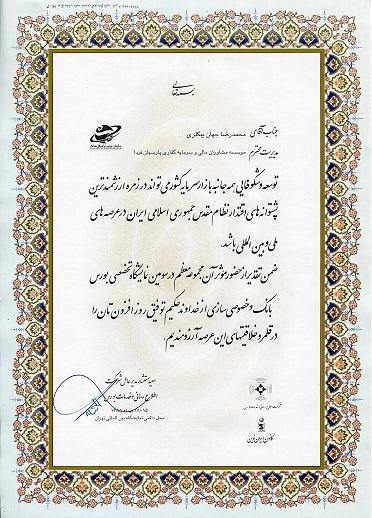 بسمه تعالی
جناب آقای محمدرضا جهان بیگلری
مدیریت محترم موسسه مشاوران مالی و سرمایه گذاری پارسیان فردا
توسعه و شکوفایی همه جانبه بازار سرمایه کشور می تواند در زمره ارزشمندترین
پشتوانه های اقتدار نظام مقدس جمهوری اسلامی ایران در عرصه های
ملی و بین المللی باشد.
ضمن تقدیر از حضور موثر آن مجموعه معظم در سومین نمایشگاه تخصصی بورس
بانک و خصوصی سازی از خداوند حکیم توفیق روز افزون تان را
در قلمرو خلاقیتهای این عرصه آرزومندیم.
مدیرعامل شرکت
اطلاع رسانی و خدمات بورس
محل دائمی نمایشگاه بین المللی تهران
کانون ایران نوین